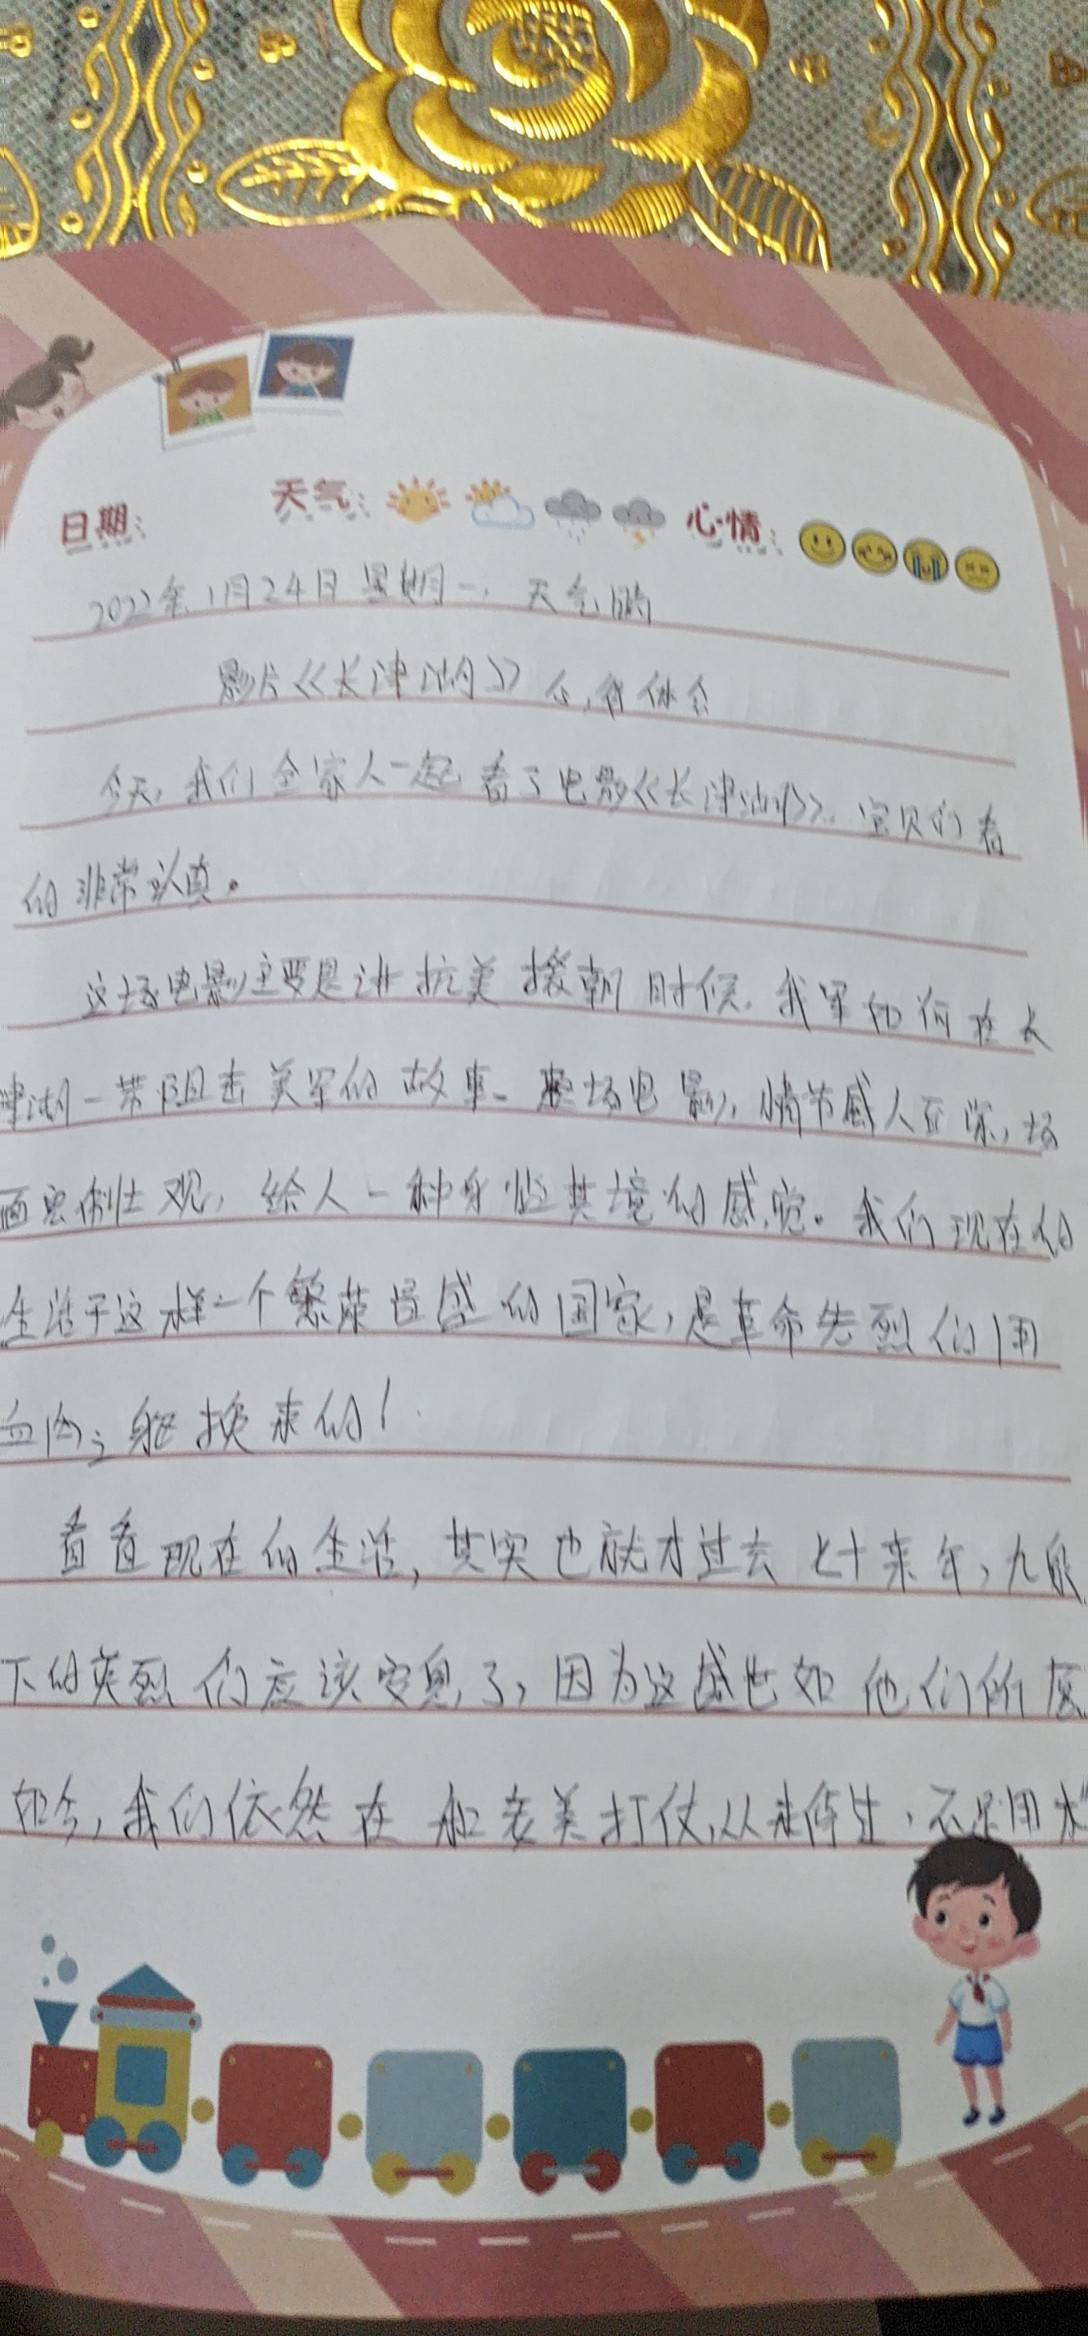 日期： 天气： 心情：
2022年1月24日 星期一，天气晴
影片《长津湖》心得体会
今天，我们全家人一起看了电影《长津湖》.宝贝们看
的非常认真。
这场电影主要是讲抗美援朝时候，我军如何在长
津湖一带阻击美军的故事。整场电影，情节感人至深，场
面宏伟壮观，给人一种身临其境的感觉。我们现在的
生活于这样一个繁荣昌盛的国家，是革命先烈们用
血肉之躯换来的！
看看现在的生活，其实也就才过去七十来年，九泉
下的英烈们应该安息了，因为这盛世如他们所愿
如今，我们依然在和老美打仗，从未停过，不是用